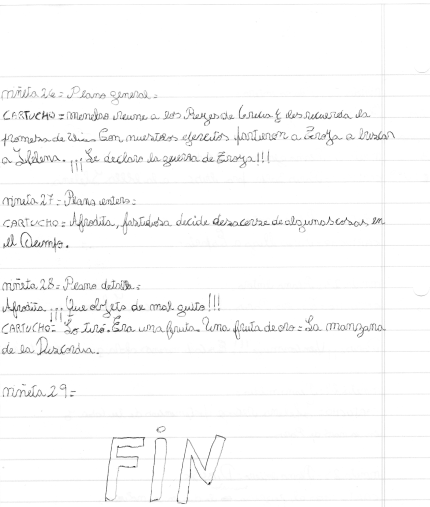 viñeta 26= Plano general=
CARTUCHO= Menelao reune a los Reyes de Grecia y les recuerda la
promesa de Con nuestros ejercitos partieron a Troya a buscar
a Helena. ¡¡¡Se declaro la guerra de Troya!!!
viñeta 27= Plano entero=
CARTUCHO= Afrodita, fastidiosa decide desacerse de algunas cosas, en
el Olimpo.
viñeta 28= Plano detalle=
Afrodita ¡¡¡Que objeto de mal gusto!!!
CARTUCHO= Lo tiró. Era una fruta. Una fruta de oro= La manzana
de la Discordia.
viñeta 29=
FiN